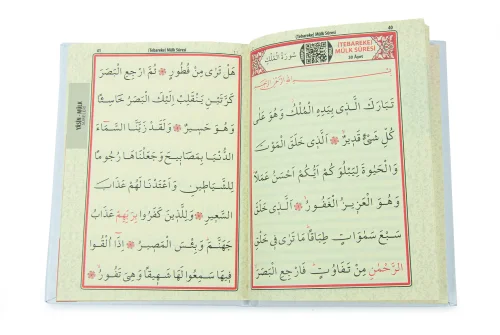 40
(Tebareke) Mülk Sûresi
(TEBAREKE)
MÜLK SÛRESİ
30 Ayet
سُورَةُ الْمُلْكِ
تَبَارَكَ الَّذ۪ي بِيَدِهِ الْمُلْكُ وَهُوَ عَلٰى
كُلِّ شَيْءٍ قَد۪يرٌ ❁ اَلَّذ۪ي خَلَقَ الْمَوْتَ
وَالْحَيٰوةَ لِيَبْلُوَكُمْ اَيُّكُمْ اَحْسَنُ عَمَلًا
وَهُوَ الْعَز۪يزُ الْغَفُورُ ❁ اَلَّذ۪ي خَلَقَ
سَبْعَ سَمٰوَاتٍ طِبَاقًا مَا تَرٰى ف۪ي خَلْقِ
الرَّحْمٰنِ مِنْ تَفَاوُتٍ فَارْجِعِ الْبَصَرَ
41
(Tebareke) Mülk Sûresi
YÂSÎN - MÜLK
هَلْ تَرٰى مِنْ فُطُورٍ ❁ ثُمَّ ارْجِعِ الْبَصَرَ
كَرَّتَيْنِ يَنْقَلِبْ اِلَيْكَ الْبَصَرُ خَاسِئًا
وَهُوَ حَس۪يرٌ ❁ وَلَقَدْ زَيَّنَّا السَّمَٓاءَ
الدُّنْيَا بِمَصَاب۪يحَ وَجَعَلْنَاهَا رُجُومًا
لِلشَّيَاط۪ينِ وَاَعْتَدْنَا لَهُمْ عَذَابَ
السَّع۪يرِ ❁ وَلِلَّذ۪ينَ كَفَرُوا بِرَبِّهِمْ عَذَابُ
جَهَنَّمَ وَبِئْسَ الْمَص۪يرُ ❁ اِذَٓا اُلْقُوا
ف۪يهَا سَمِعُوا لَهَا شَه۪يقًا وَهِيَ تَفُورُ ❁